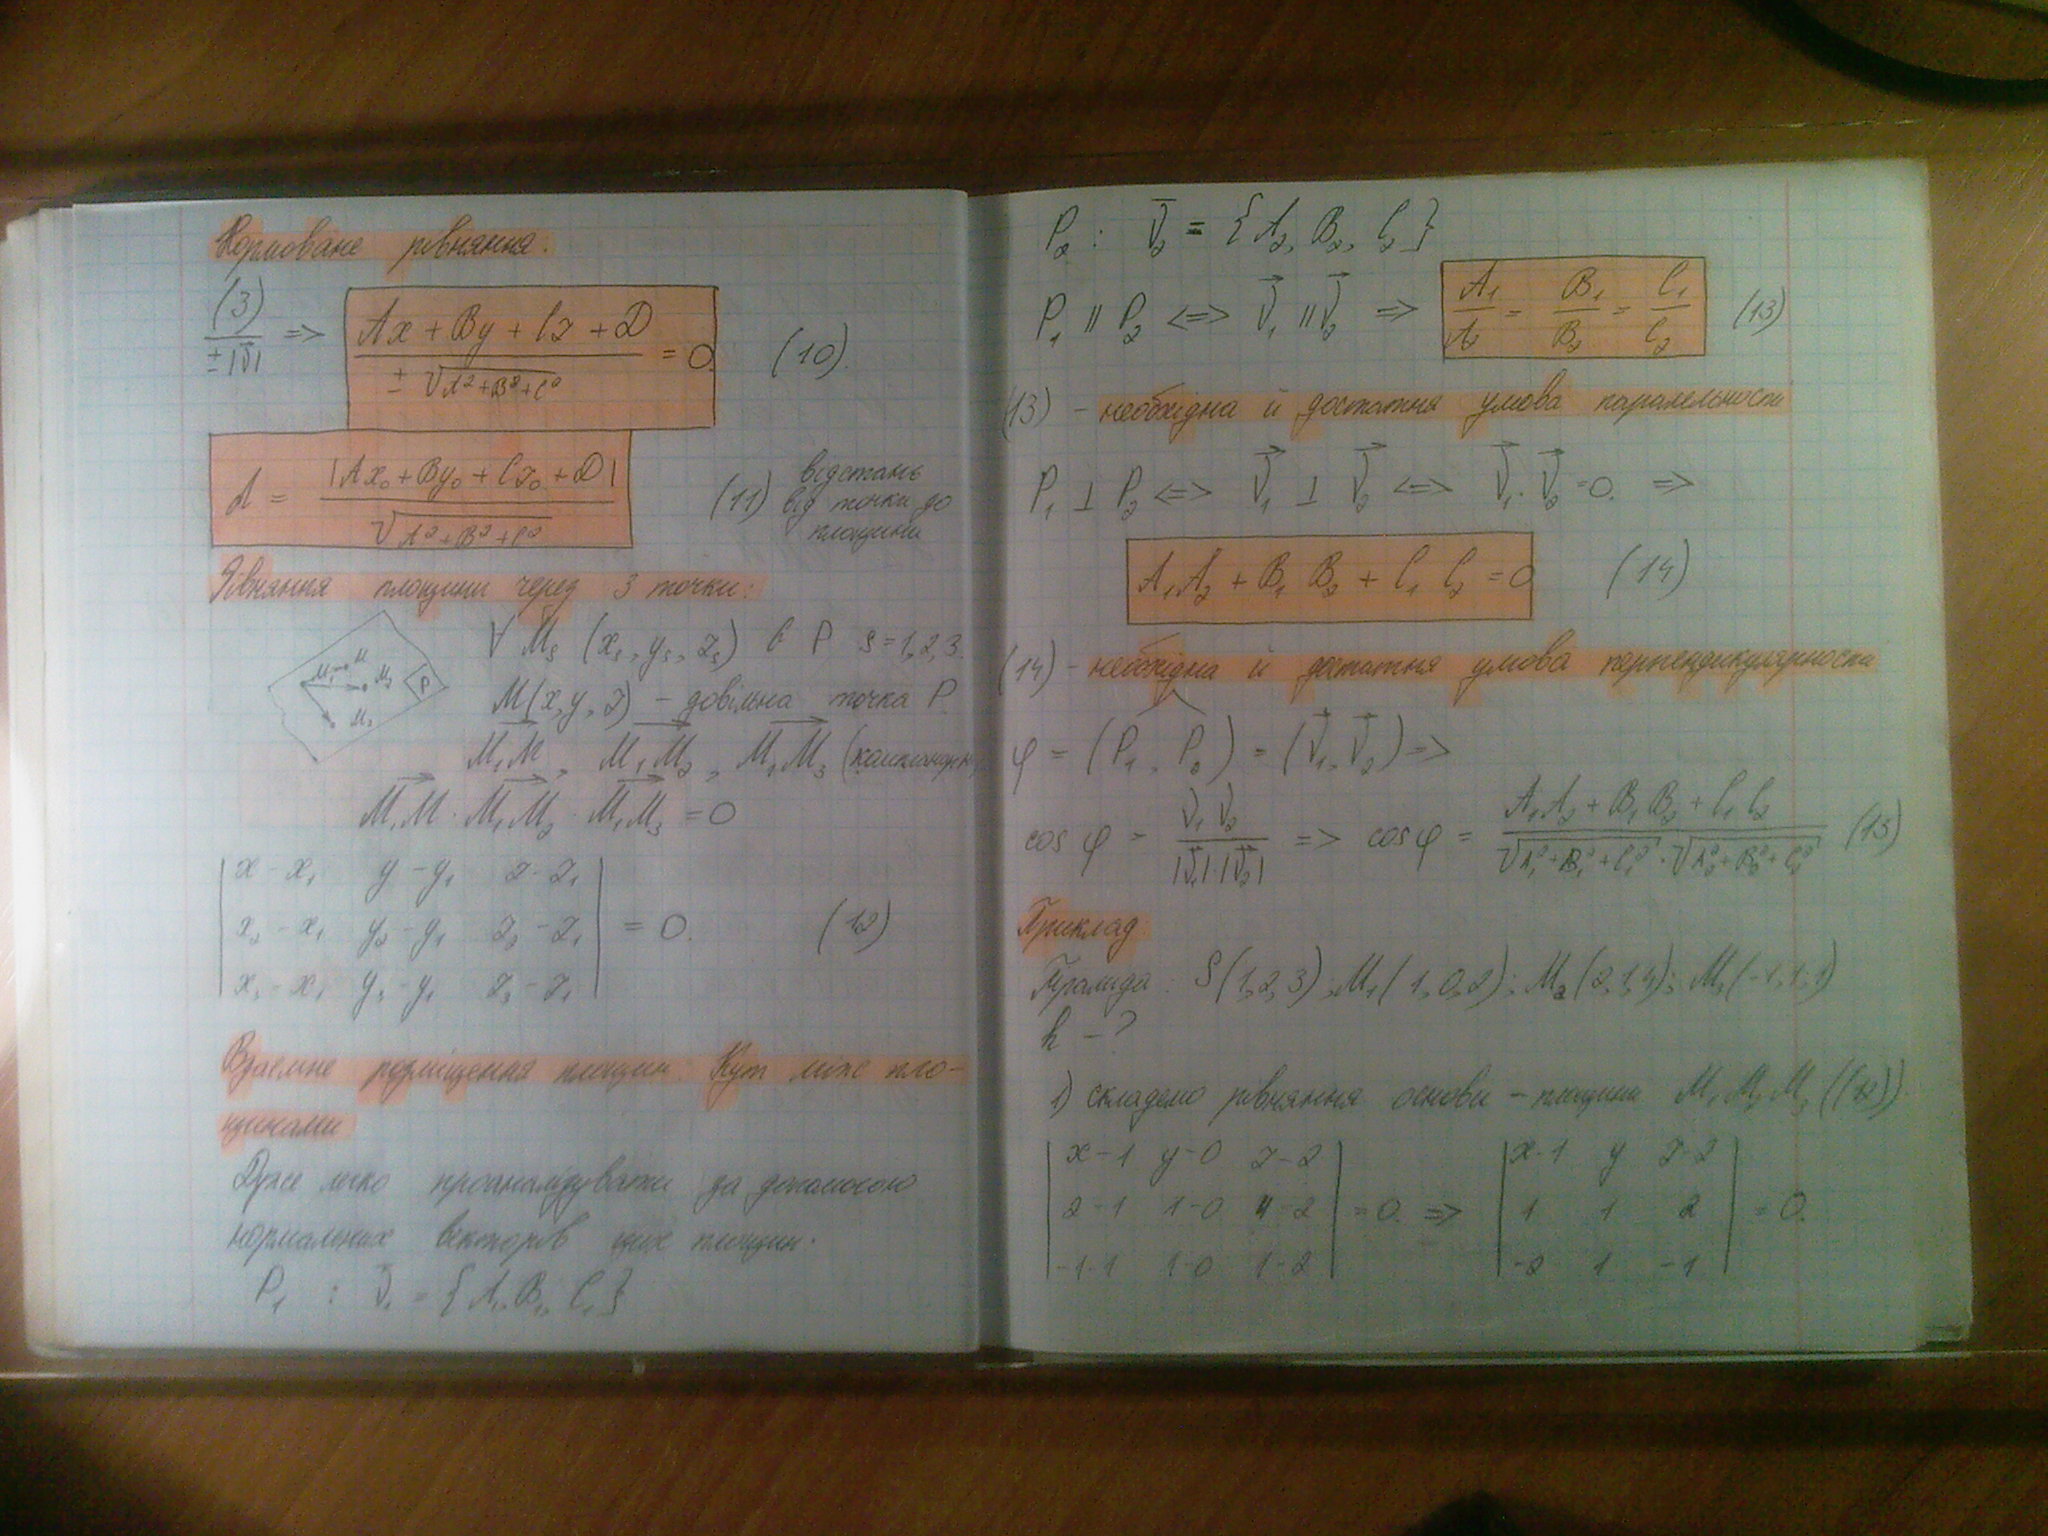 Нормоване рівняння:
(3)/(±|V̄|) => (Ax + By + Cz + D)/(± √(A²+B²+C²)) = 0. (10).
d = |Ax₀ + By₀ + Cz₀ + D| / √(A²+B²+C²) (11) відстань
від точки до
площини
Рівняння площини через 3 точки:
∀ Mₛ (xₛ, yₛ, zₛ) є P s = 1,2,3.
M(x, y, z) – довільна точка P.
M₁M, M₁M₂, M₁M₃
M₁M · M₁M₂ · M₁M₃ = 0
| x - x₁ y - y₁ z - z₁ |
| x₂ - x₁ y₂ - y₁ z₂ - z₁ | = 0. (12)
| x₃ - x₁ y₃ - y₁ z₃ - z₁ |
M₁ M M₂ M₃ P
Взаємне розміщення площин. Кут між пло-
щинами
Дуже легко проаналізувати за допомогою
нормальних векторів цих площин.
P₁ : V̄₁ = {A₁, B₁, C₁}
P₂ : V̄₂ = {A₂, B₂, C₂}
P₁ || P₂ <=> V₁ || V₂ => A₁/A₂ = B₁/B₂ = C₁/C₂ (13)
(13) – необхідна й достатня умова паралельности
P₁ ⊥ P₂ <=> V₁ ⊥ V₂ <=> V₁ · V₂ = 0. =>
A₁A₂ + B₁B₂ + C₁C₂ = 0 (14)
(14) – необхідна й достатня умова перпендикулярности
φ = (P₁, P₂) = (V₁, V₂) =>
cos φ = V₁V₂/(|V₁|·|V₂|) => cos φ = (A₁A₂ + B₁B₂ + C₁C₂)/(√(A₁²+B₁²+C₁²) · √(A₂²+B₂²+C₂²)) (15)
Приклад:
Піраміда: S(1,2,3); M₁(1,0,2); M₂(2,1,4); M₃(-1,1,1)
h – ?
1) складемо рівняння основи – площини M₁M₂M₃ ((12))
| x-1 y-0 z-2 | | x-1 y z-2 |
| 2-1 1-0 4-2 | = 0. => | 1 1 2 | = 0.
| -1-1 1-0 1-2 | | -2 1 -1 |